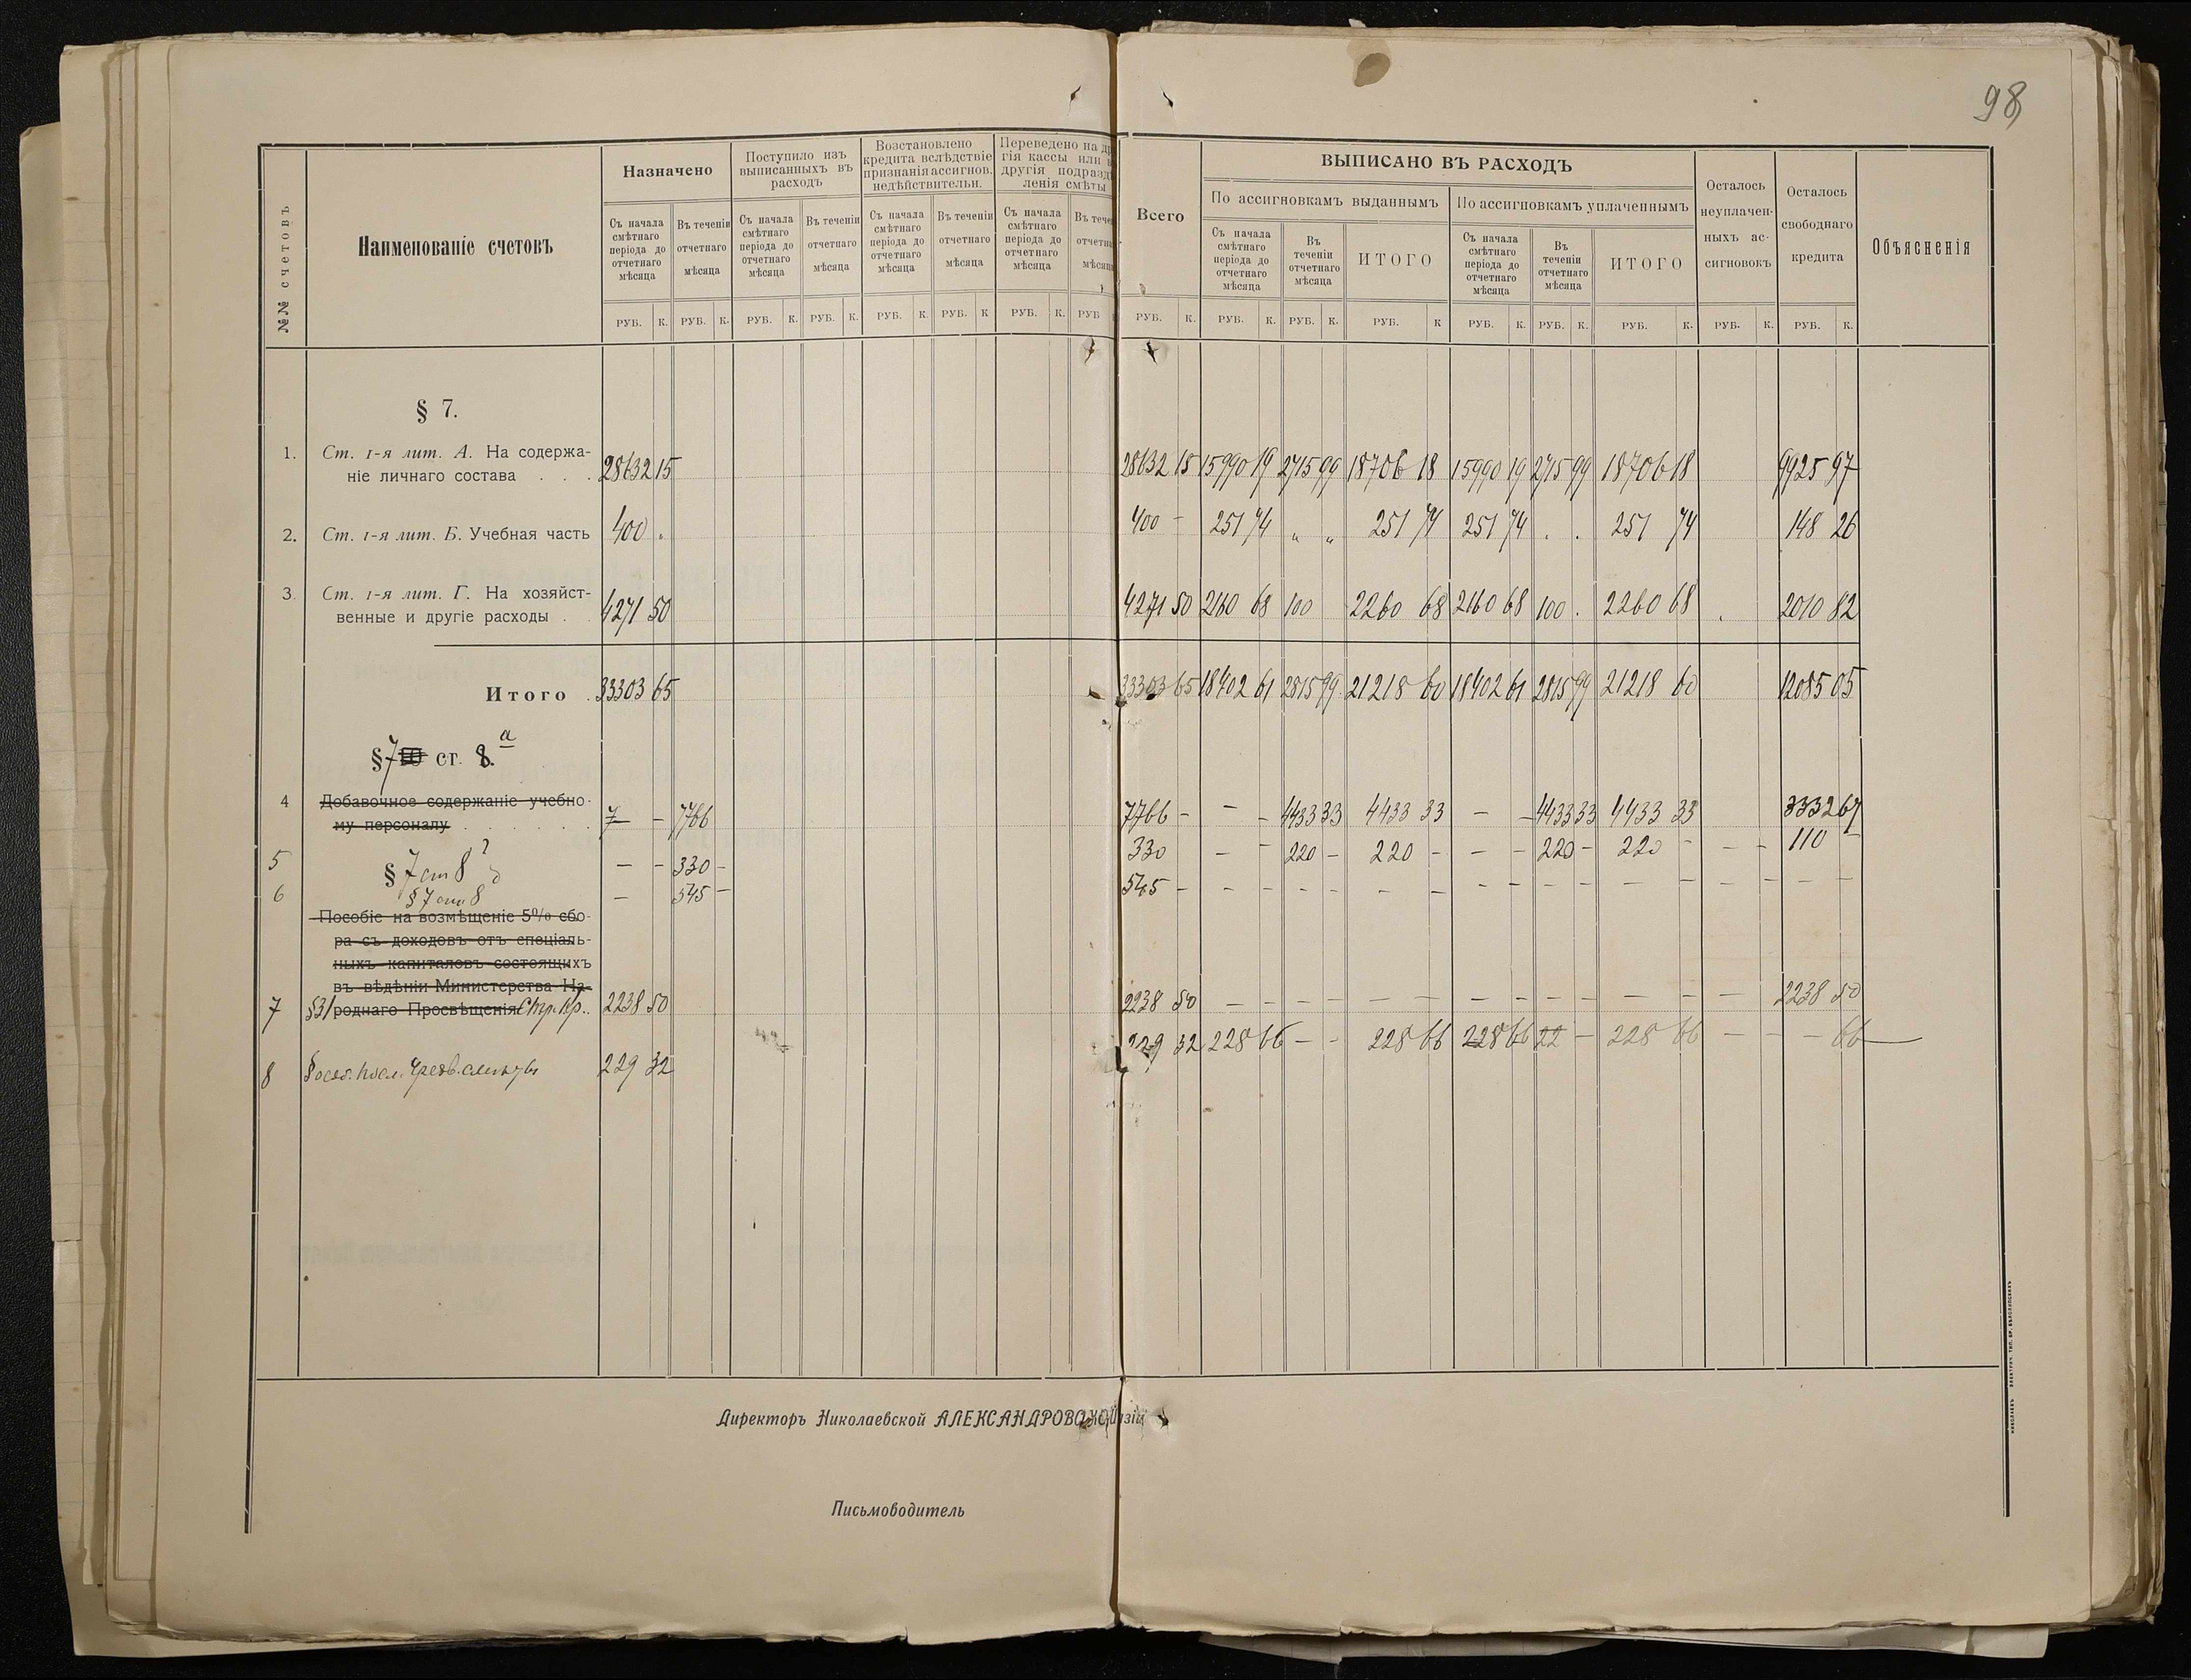 98
№№ счетовъ
Наименованіе счетовъ
Назначено
Поступило изъ
выписанныхъ въ
расходъ
Возстановлено
кредита вслѣдствіе
признанія ассигнов.
недѣйствительн.
Переведено на др
гія кассы или в
другія подразд
ленія смѣты
Всего
ВЫПИСАНО ВЪ РАСХОДЪ
По ассигновкамъ выданнымъ
По ассигновкамъ уплаченнымъ
Осталось
неуплачен-
ныхъ ас-
сигновокъ
Осталось
свободнаго
кредита
Объясненія
Съ начала
смѣтнаго
періода до
отчетнаго
мѣсяца
Въ теченіи
отчетнаго
мѣсяца
Съ начала
смѣтнаго
періода до
отчетнаго
мѣсяца
Въ теченіи
отчетнаго
мѣсяца
Съ начала
смѣтнаго
періода до
отчетнаго
мѣсяца
Въ теченіи
отчетнаго
мѣсяца
Съ начала
смѣтнаго
періода до
отчетнаго
мѣсяца
Въ тече
отчетна
мѣсяц
Съ начала
смѣтнаго
періода до
отчетнаго
мѣсяца
Въ
теченіи
отчетнаго
мѣсяца
ИТОГО
Съ начала
смѣтнаго
періода до
отчетнаго
мѣсяца
Въ
теченіи
отчетнаго
мѣсяца
ИТОГО
РУБ. К. РУБ. К. РУБ. К. РУБ. К. РУБ. К. РУБ. К РУБ. К. РУБ РУБ. К. РУБ. К. РУБ. К. РУБ. К РУБ. К. РУБ. К. РУБ. К. РУБ. К. РУБ. К.
§ 7.
1. Ст. 1-я лит. А. На содержа-
ніе личнаго состава . . . 28632 15 28632 15 15990 19 2715 99 18706 18 15990 19 2715 99 18706 18 9925 97
2. Ст. 1-я лит. Б. Учебная часть 400 „ 400 – 251 74 „ „ 251 74 251 74 . . 251 74 148 26
3. Ст. 1-я лит. Г. На хозяйст-
венные и другіе расходы . 4271 50 4271 50 2160 68 100 2260 68 2160 68 100 . 2260 68 . 2010 82
Итого . 33303 65 33303 65 18402 61 2815 99 21218 60 18402 61 2815 99 21218 60 12085 05
§ 7 10 ст. 8. а
4 Добавочное содержаніе учебно-
му персоналу . . . . . . 7 – 7766 7766 – – – 4433 33 4433 33 – – 4433 33 4433 33 3332 67
5 § 7 ст 8 – – 330 – 330 – – 220 – 220 – – – 220 – 220 – – – 110 –
6 § 7 ст 8 – 545 – 545 – – – – – – – – – – – – – – – – –
Пособіе на возмѣщеніе 5% сбо-
ра съ доходовъ отъ спеціаль-
ныхъ капиталовъ состоящихъ
въ вѣдѣніи Министерства На-
7 §31 роднаго Просвѣщенія Стр. Кр.. 2238 50 2238 50 – – – – – – – – – – – – – 2238 50
8 229 32 229 32 228 66 – – 228 66 228 66 22 – 228 66 – – – 66
Директоръ Николаевской АЛЕКСАНДРОВСКОЙ зіи
Письмоводитель